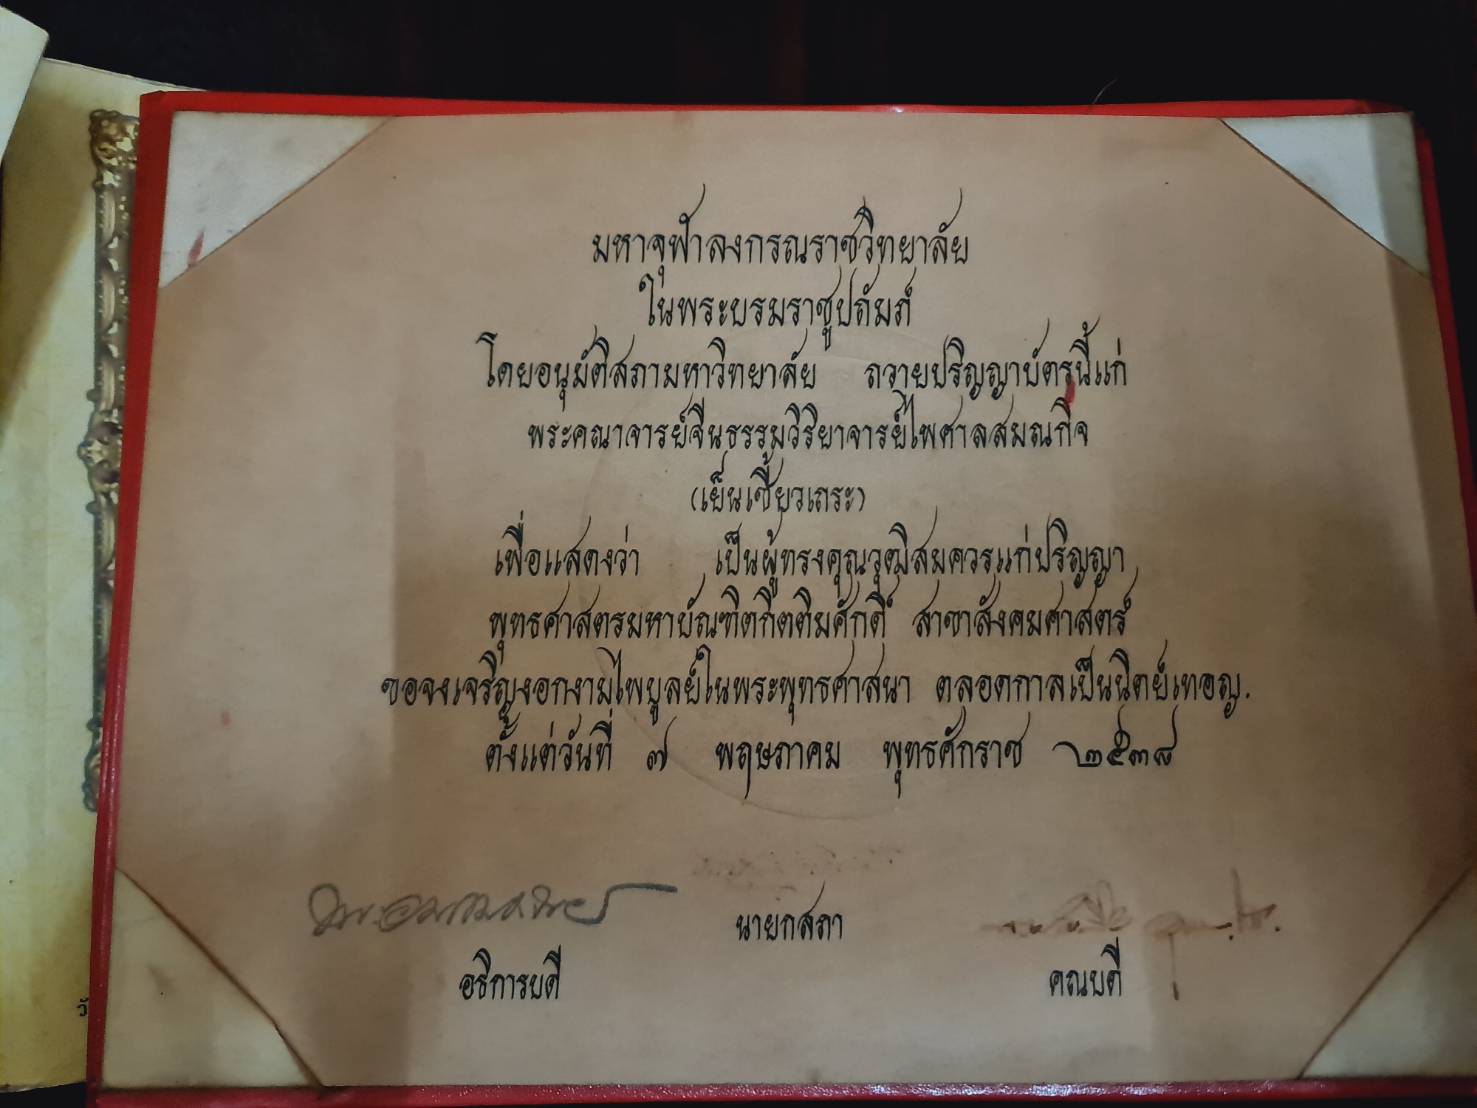 มหาจุฬาลงกรณราชวิทยาลัย
ในพระบรมราชูปถัมภ์
โดยอนุมัติสภามหาวิทยาลัย ถวายปริญญาบัตรนี้แก่
พระคณาจารย์จีนธรรมวิริยาจารย์ไพศาลสมณกิจ
(เย็นเชี้ยวเถระ)
เพื่อแสดงว่า เป็นผู้ทรงคุณวุฒิสมควรแก่ปริญญา
พุทธศาสตรมหาบัณฑิตกิตติมศักดิ์ สาขาสังคมศาสตร์
ขอจงเจริญงอกงามไพบูลย์ในพระพุทธศาสนา ตลอดกาลเป็นนิตย์เทอญ.
ตั้งแต่วันที่ ๗ พฤษภาคม พุทธศักราช ๒๕๓๘
นายกสภา
อธิการบดี
คณบดี